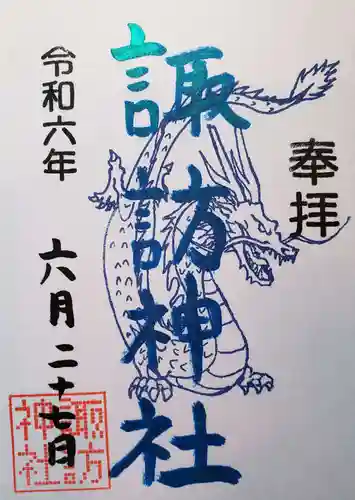 奉拝
諏訪神社
令和六年
六月二十七日
諏訪
神社